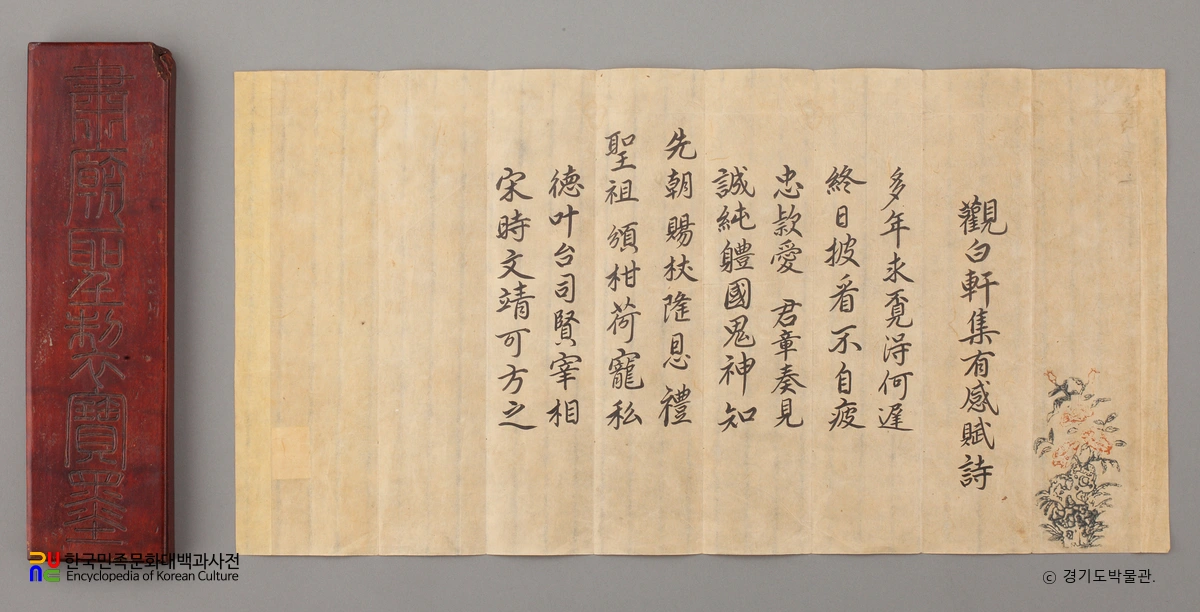 觀白軒集有感賦詩
多年求覓得何遲
終日披看不自疲
忠款愛 君章奏見
誠純軆國鬼神知
先朝賜杖隆恩禮
聖祖頒柑荷寵私
德叶台司賢宰相
宋時文靖可方之
肅廟御製寶墨
한국민족문화대백과사전
Encyclopedia of Korean Culture
ⓒ 경기도박물관.